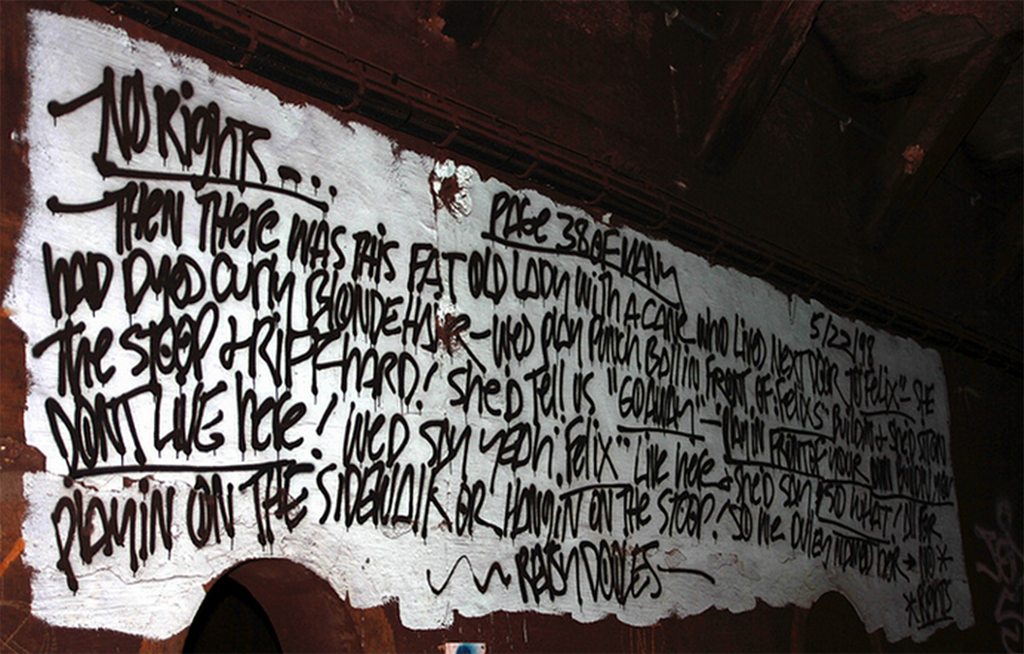 NO RigHTS...
PAGE 38 OF MANY
5/22/98
THEN THere WAS THiS FAT OLD LADY WiTH A CANE WHO LiVED NEXT DOOR TO FeLiX - SHE
HAD DyeD CUrly BLONDE HAiR - WeD PLAY PUNCH BALL iN FRONT OF FeLiXS BUiLDiN & SHeD SiT ON
THe STOOP & RiPP HARD! SHeD TeLL US "GO AWAY - PLAY iN FRONT OF YOUR OWN BUiLDiN YOU
DONT LiVE Here! WeD SAY yeAH "FeLiX" LiVE Here & SHeD SAY SO WHAT!
PLAYiN ON THE SiDEWALK OR HANGiN ON THE STOOP! SO We DULEY NAMED HeR → NO *
* RigHTS
~ REVS